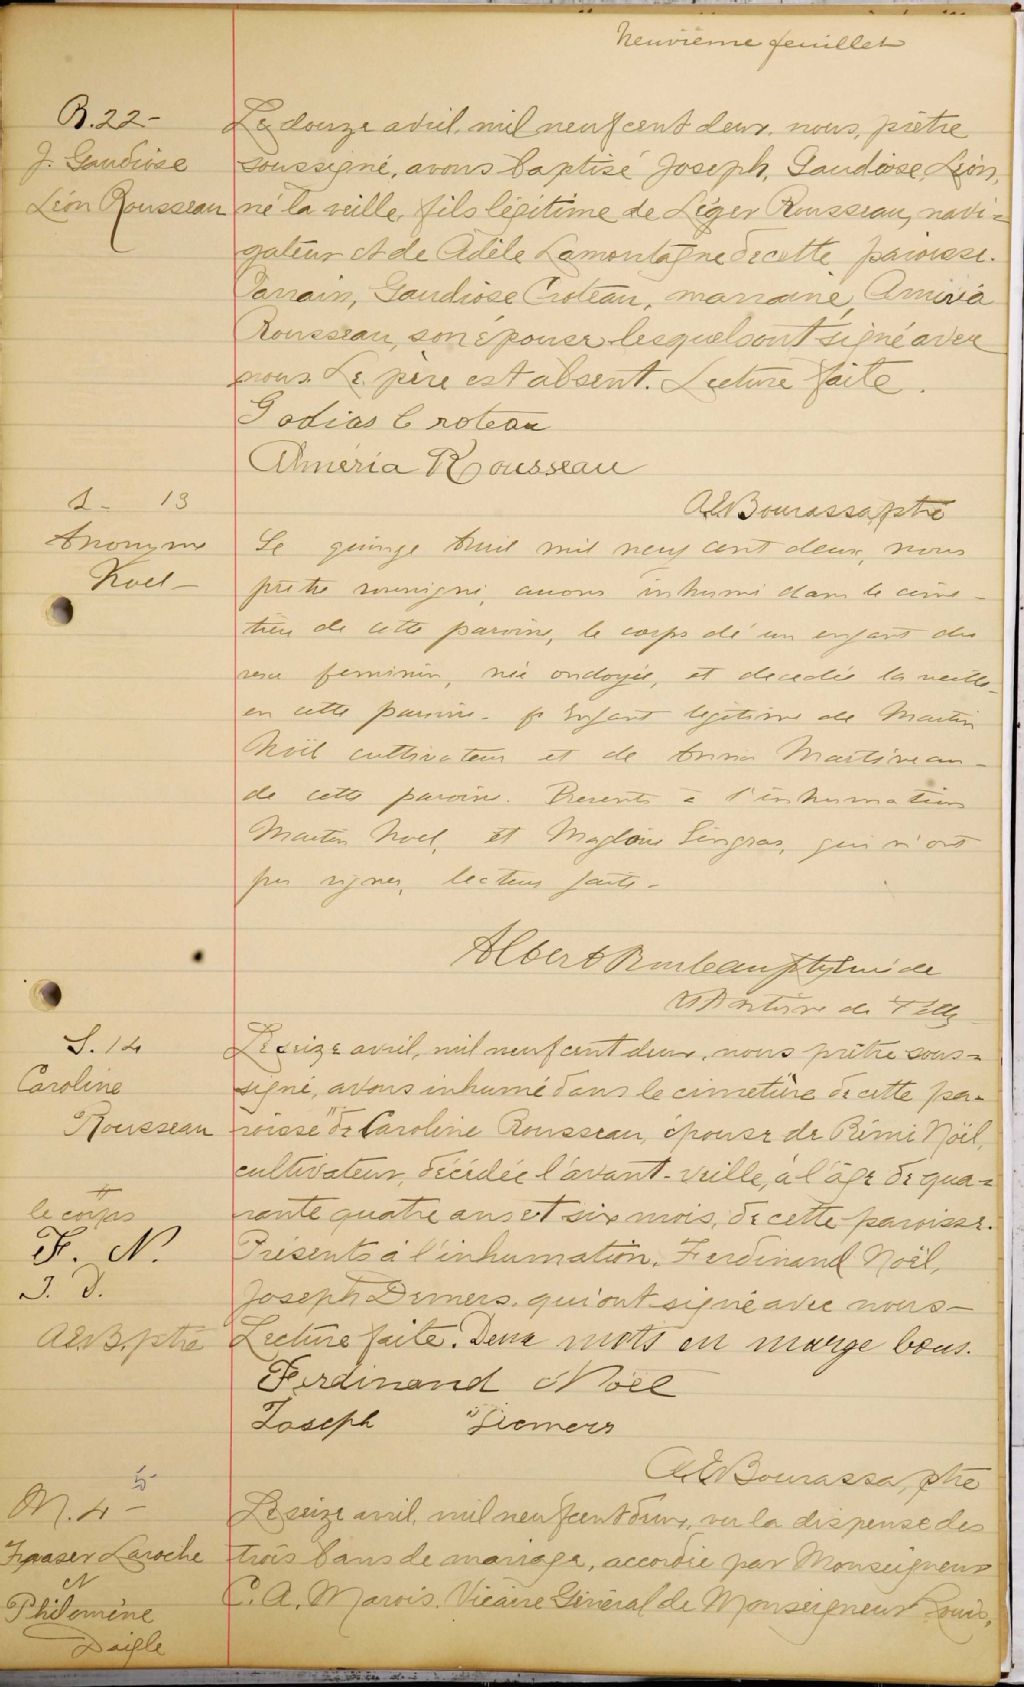 Neuvième feuillet
B. 22-
J. Gaudiose
Léon Rousseau
Le douze avril, mil neuf cent deux, nous, prêtre
soussigné, avons baptisé Joseph, Gaudiose, Léon,
né la veille, fils légitime de Léger Rousseau, navi=
gateur et de Adèle Lamontagne de cette paroisse.
Parrain, Gaudiose Croteau, marraine,
Rousseau, son épouse lesquels ont signé avec
nous. Le père est absent. Lecture faite.
Godias Croteau
Alméria Rousseau
A.E. Bourassa, ptre
S - 13
Anonyme
Noel -
Le quinze Avril mil neuf cent deux, nous
prêtre soussigné, avons inhumé dans le cime -
tière de cette paroisse, le corps dé un enfant du
sexe feminin, née ondoyée, et decedée la veille
en cette paroisse - Enfant legitime de Martin
Noël cultivateur et de Anna Martineau -
de cette paroisse. Presents à l'inhumation
Martin Noel, et Magloire Gingras, qui n'ont
pu signer, lecture faite -
Albert Rouleau ptre
de
S. 14
Caroline
Rousseau
Le seize avril, mil neuf cent deux, nous prêtre sous=
signé, avons inhumé dans le cimetière de cette pa=
roisse " de Caroline Rousseau, épouse de Rémi Noël,
cultivateur, décédée l'avant-veille, à l'âge de qua=
rante quatre ans et six mois, de cette paroisse.
le corps
F. N.
J. D.
A.E.B. ptre
Présents à l'inhumation, Ferdinand Noël,
Joseph Demers, qui ont signé avec nous -
Lecture faite. Deux mots en marge bons.
Ferdinand Noël
Joseph Diemers
A.E. Bourassa, ptre
5
M. 4 -
Fraser Laroche
et
Philomène
Daigle
Le seize avril, mil neuf cent deux, vu la dispense des
trois bans de mariage, accordée par Monseigneur
C. A. Marois, Vicaire Général de Monseigneur Louis,